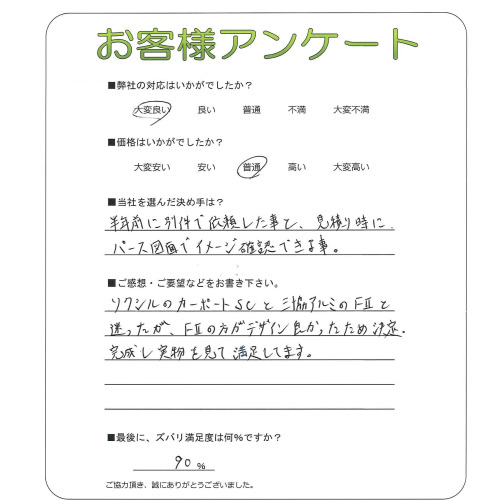 お客様アンケート
■弊社の対応はいかがでしたか？
大変良い 良い 普通 不満 大変不満
■価格はいかがでしたか？
大変安い 安い 普通 高い 大変高い
■当社を選んだ決め手は？
半年前に別件で依頼した事と、見積り時に
パース図面でイメージ確認できる事。
■ご感想・ご要望などをお書き下さい。
リクシルのカーポートSCと三協アルミのFⅡと
迷ったが、FⅡの方がデザイン良かったため決定。
完成し実物を見て満足してます。
■最後に、ズバリ満足度は何％ですか？
90 ％
ご協力頂き、誠にありがとうございました。